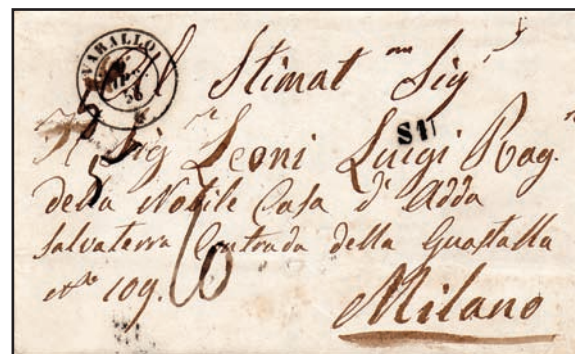 VARALLO
56
Al Stimat.mo Sig.r
S1I
Il Sig.r Leoni Luigi Rag.
della Nobile Casa d'Adda
Salvaterra Contrada della Guastalla
N.o 109.
6
Milano